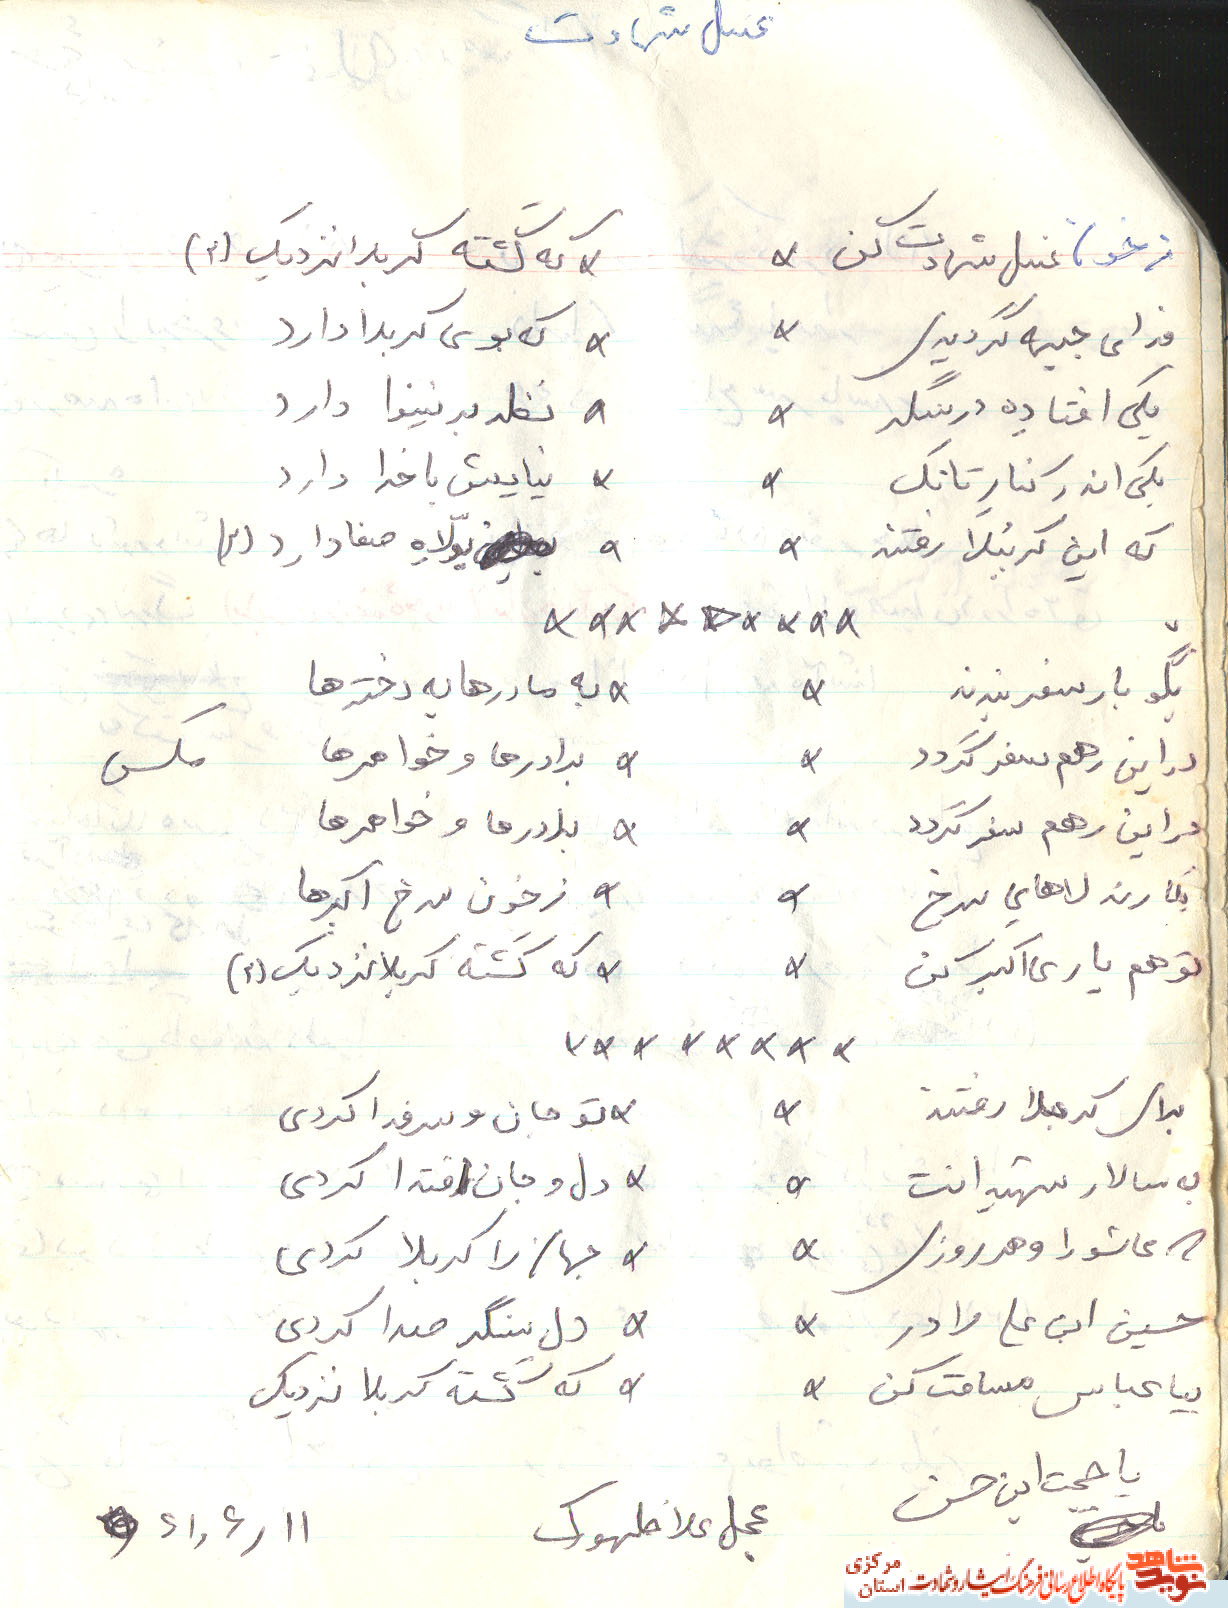 غسل شهادت
ز خون غسل شهادت کن * * که گشته کربلا نزدیک (۲)
فدای جبهه گردیدی * * که بوی کربلا دارد
یکی افتاده در سنگر * * نظر بر نینوا دارد
یکی اندر کنار تانک * * نیایش با خدا دارد
که این کربُبلا رفتن * * صفا دارد (۲)
بگو بار سفر بندند * * به مادرها به دخترها
در این ره هم سفر گردد * * برادرها و خواهرها مکس
در این ره هم سفر گردد * * برادرها و خواهرها
لاهای سرخ * * ز خون سرخ اکبرها
تو هم یاری اکبر کن * * که گشته کربلا نزدیک (۲)
برای کربلا رفتن * * تو جان و سر فدا کردی
به سالار شهیدانت * * دل و جان اقتدا کردی
عاشورا و هر روزی * * جهان را کربلا کردی
حسین ابن علی را در * * دل سنگر صدا کردی
بیا عباس مسافت کن * * که گشته کربلا نزدیک
یا حجت ابن حسن
عجل علا ظهورک
۶۱٫۶٫۱۱
نوید شاهد
پایگاه اطلاع رسانی فرهنگ ایثار و شهادت استان مرکزی